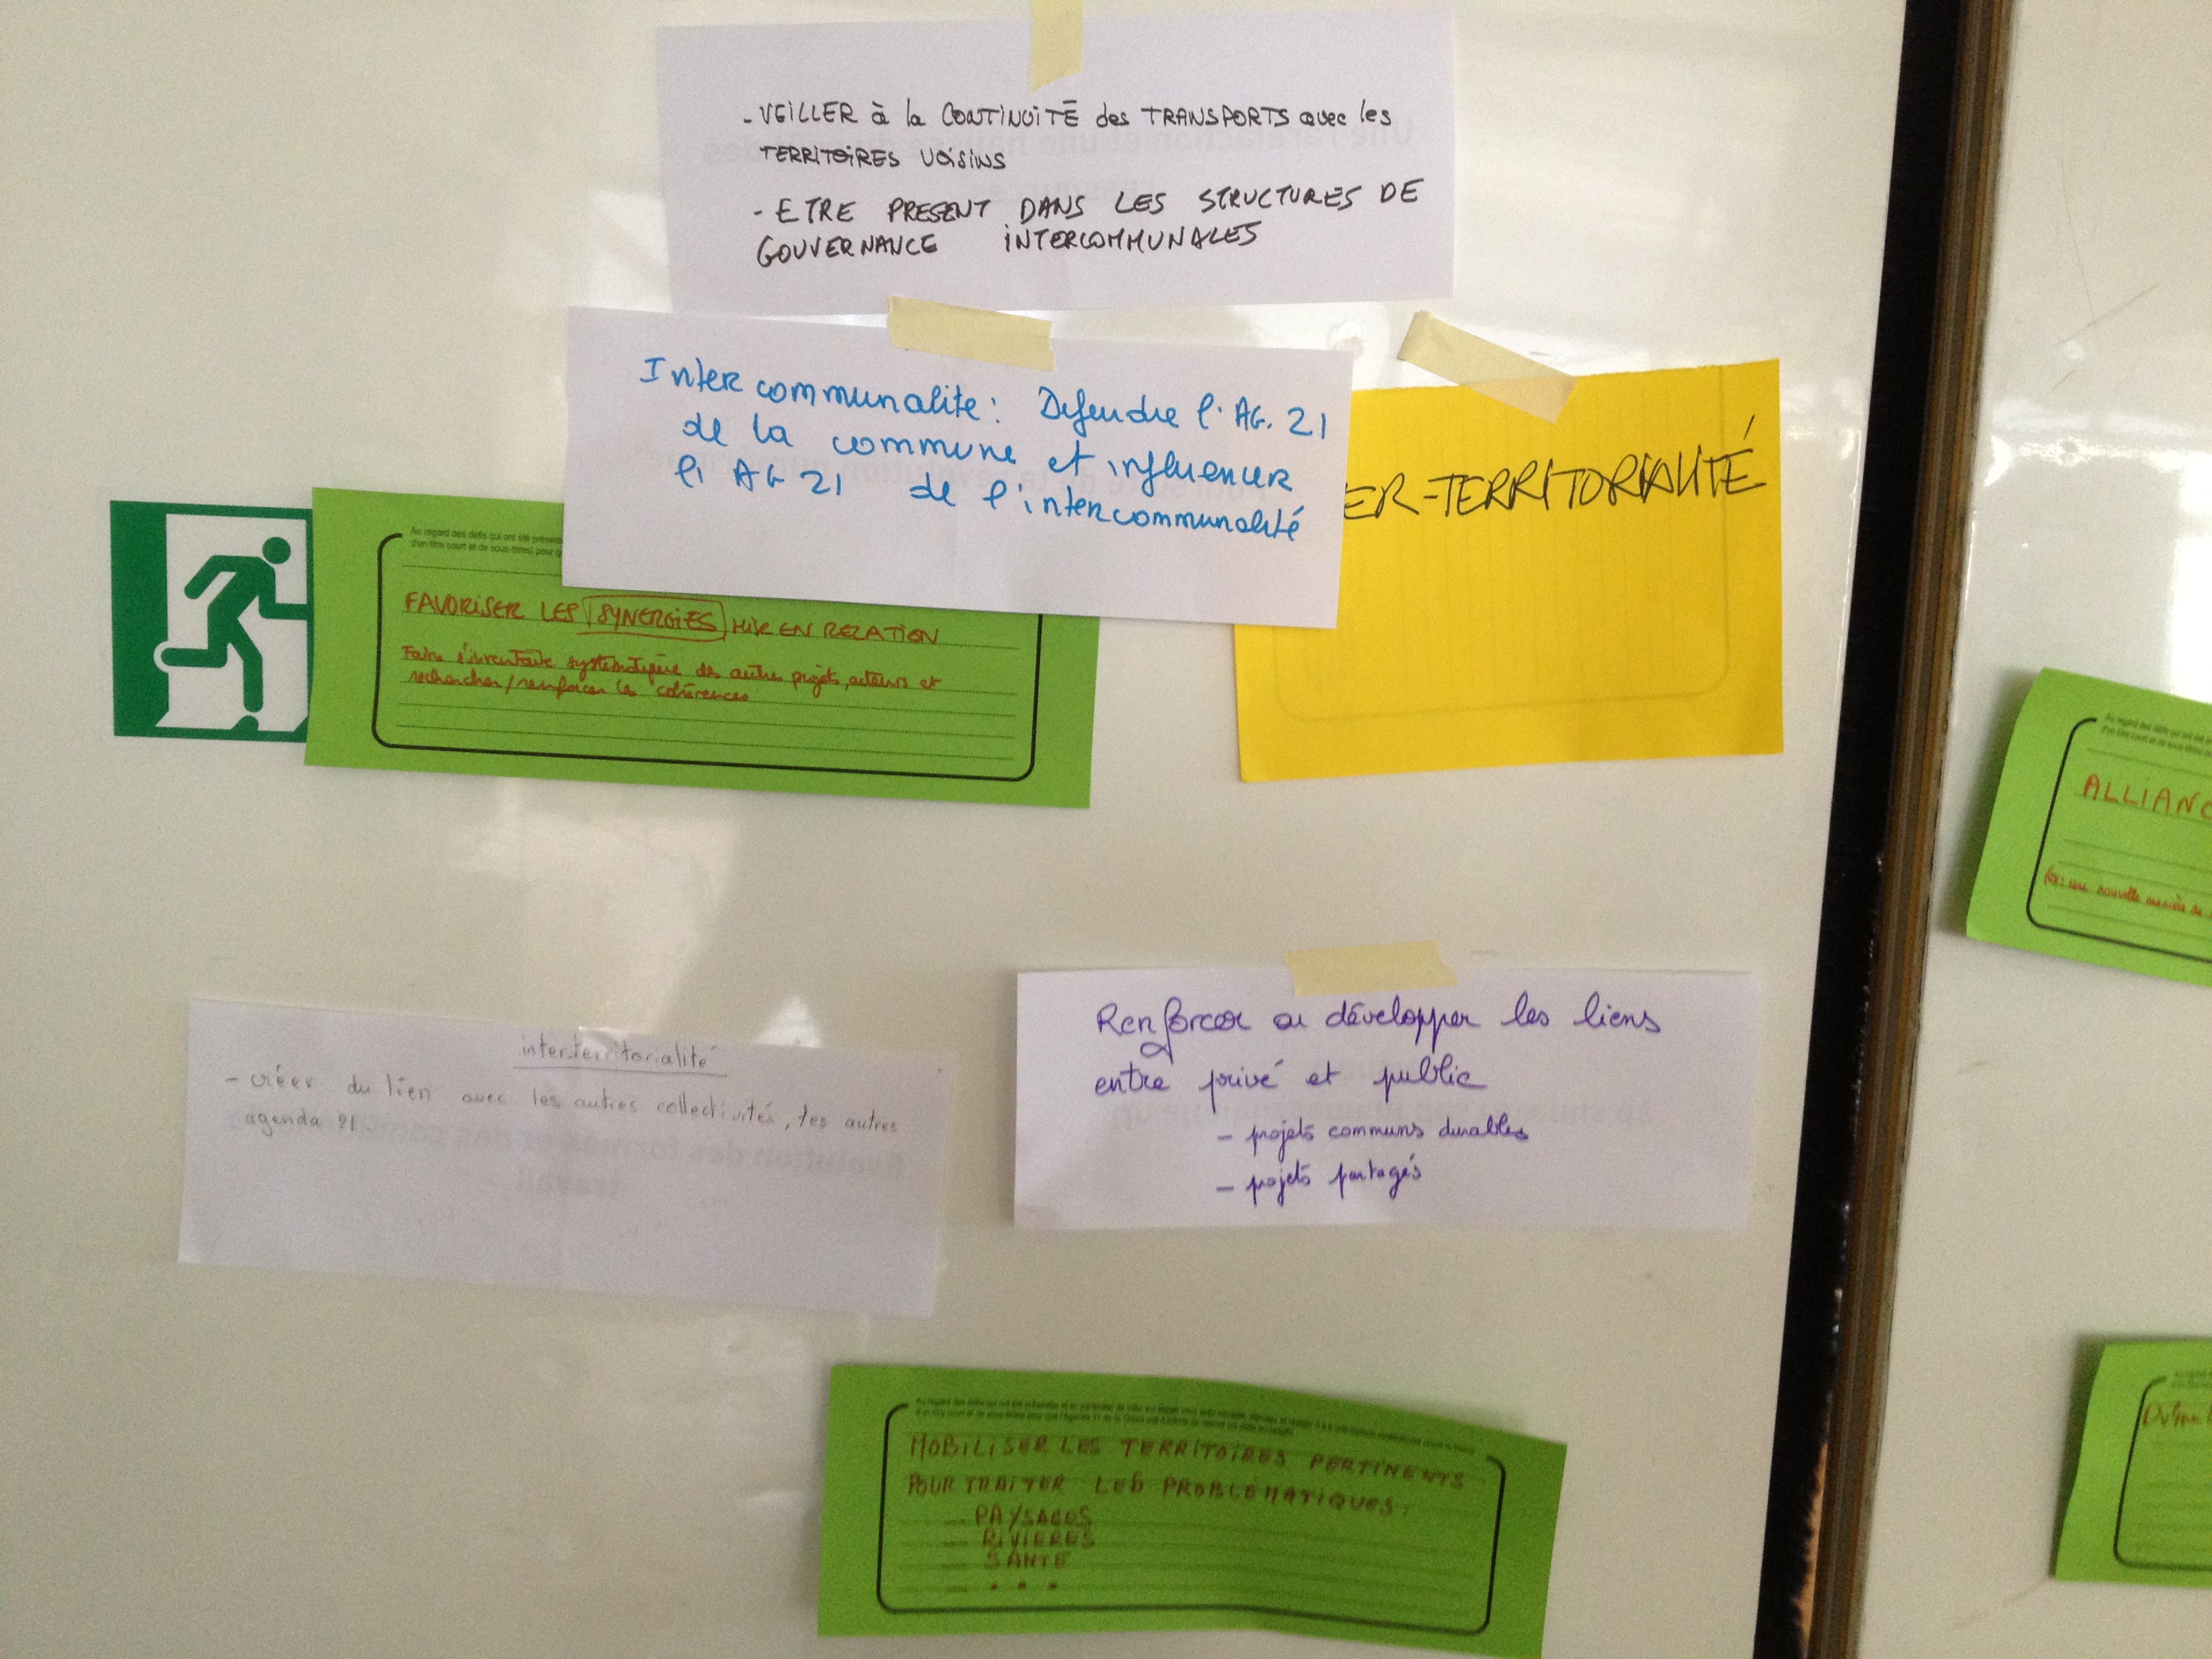 - VEILLER à la CONTINUITÉ des TRANSPORTS avec les
TERRITOIRES VOISINS
- ETRE PRESENT DANS LES STRUCTURES DE
GOUVERNANCE INTERCOMMUNALES
Intercommunalite: Defendre l'AG. 21
de la commune et influencer
l'AG 21 de l'intercommunalité
ER-TERRITORIALITÉ
Au regard des défis qui ont été
d'un titre court et de sous-titres) pour
FAVORISER LES SYNERGIES MISE EN RELATION
Faire l'inventaire systématique des autres projets, acteurs et
rechercher/renforcer les cohérences
ALLIANC
(ex: une nouvelle manière de
interterritorialité
- créer du lien avec les autres collectivités, les autres
agenda 21
Renforcer ou développer les liens
entre privé et public
- projets communs durables
- projets partagés
MOBILISER LES TERRITOIRES PERTINENTS
POUR TRAITER LES PROBLEMATIQUES:
- PAYSAGES
- RIVIERES
- SANTE
- ...